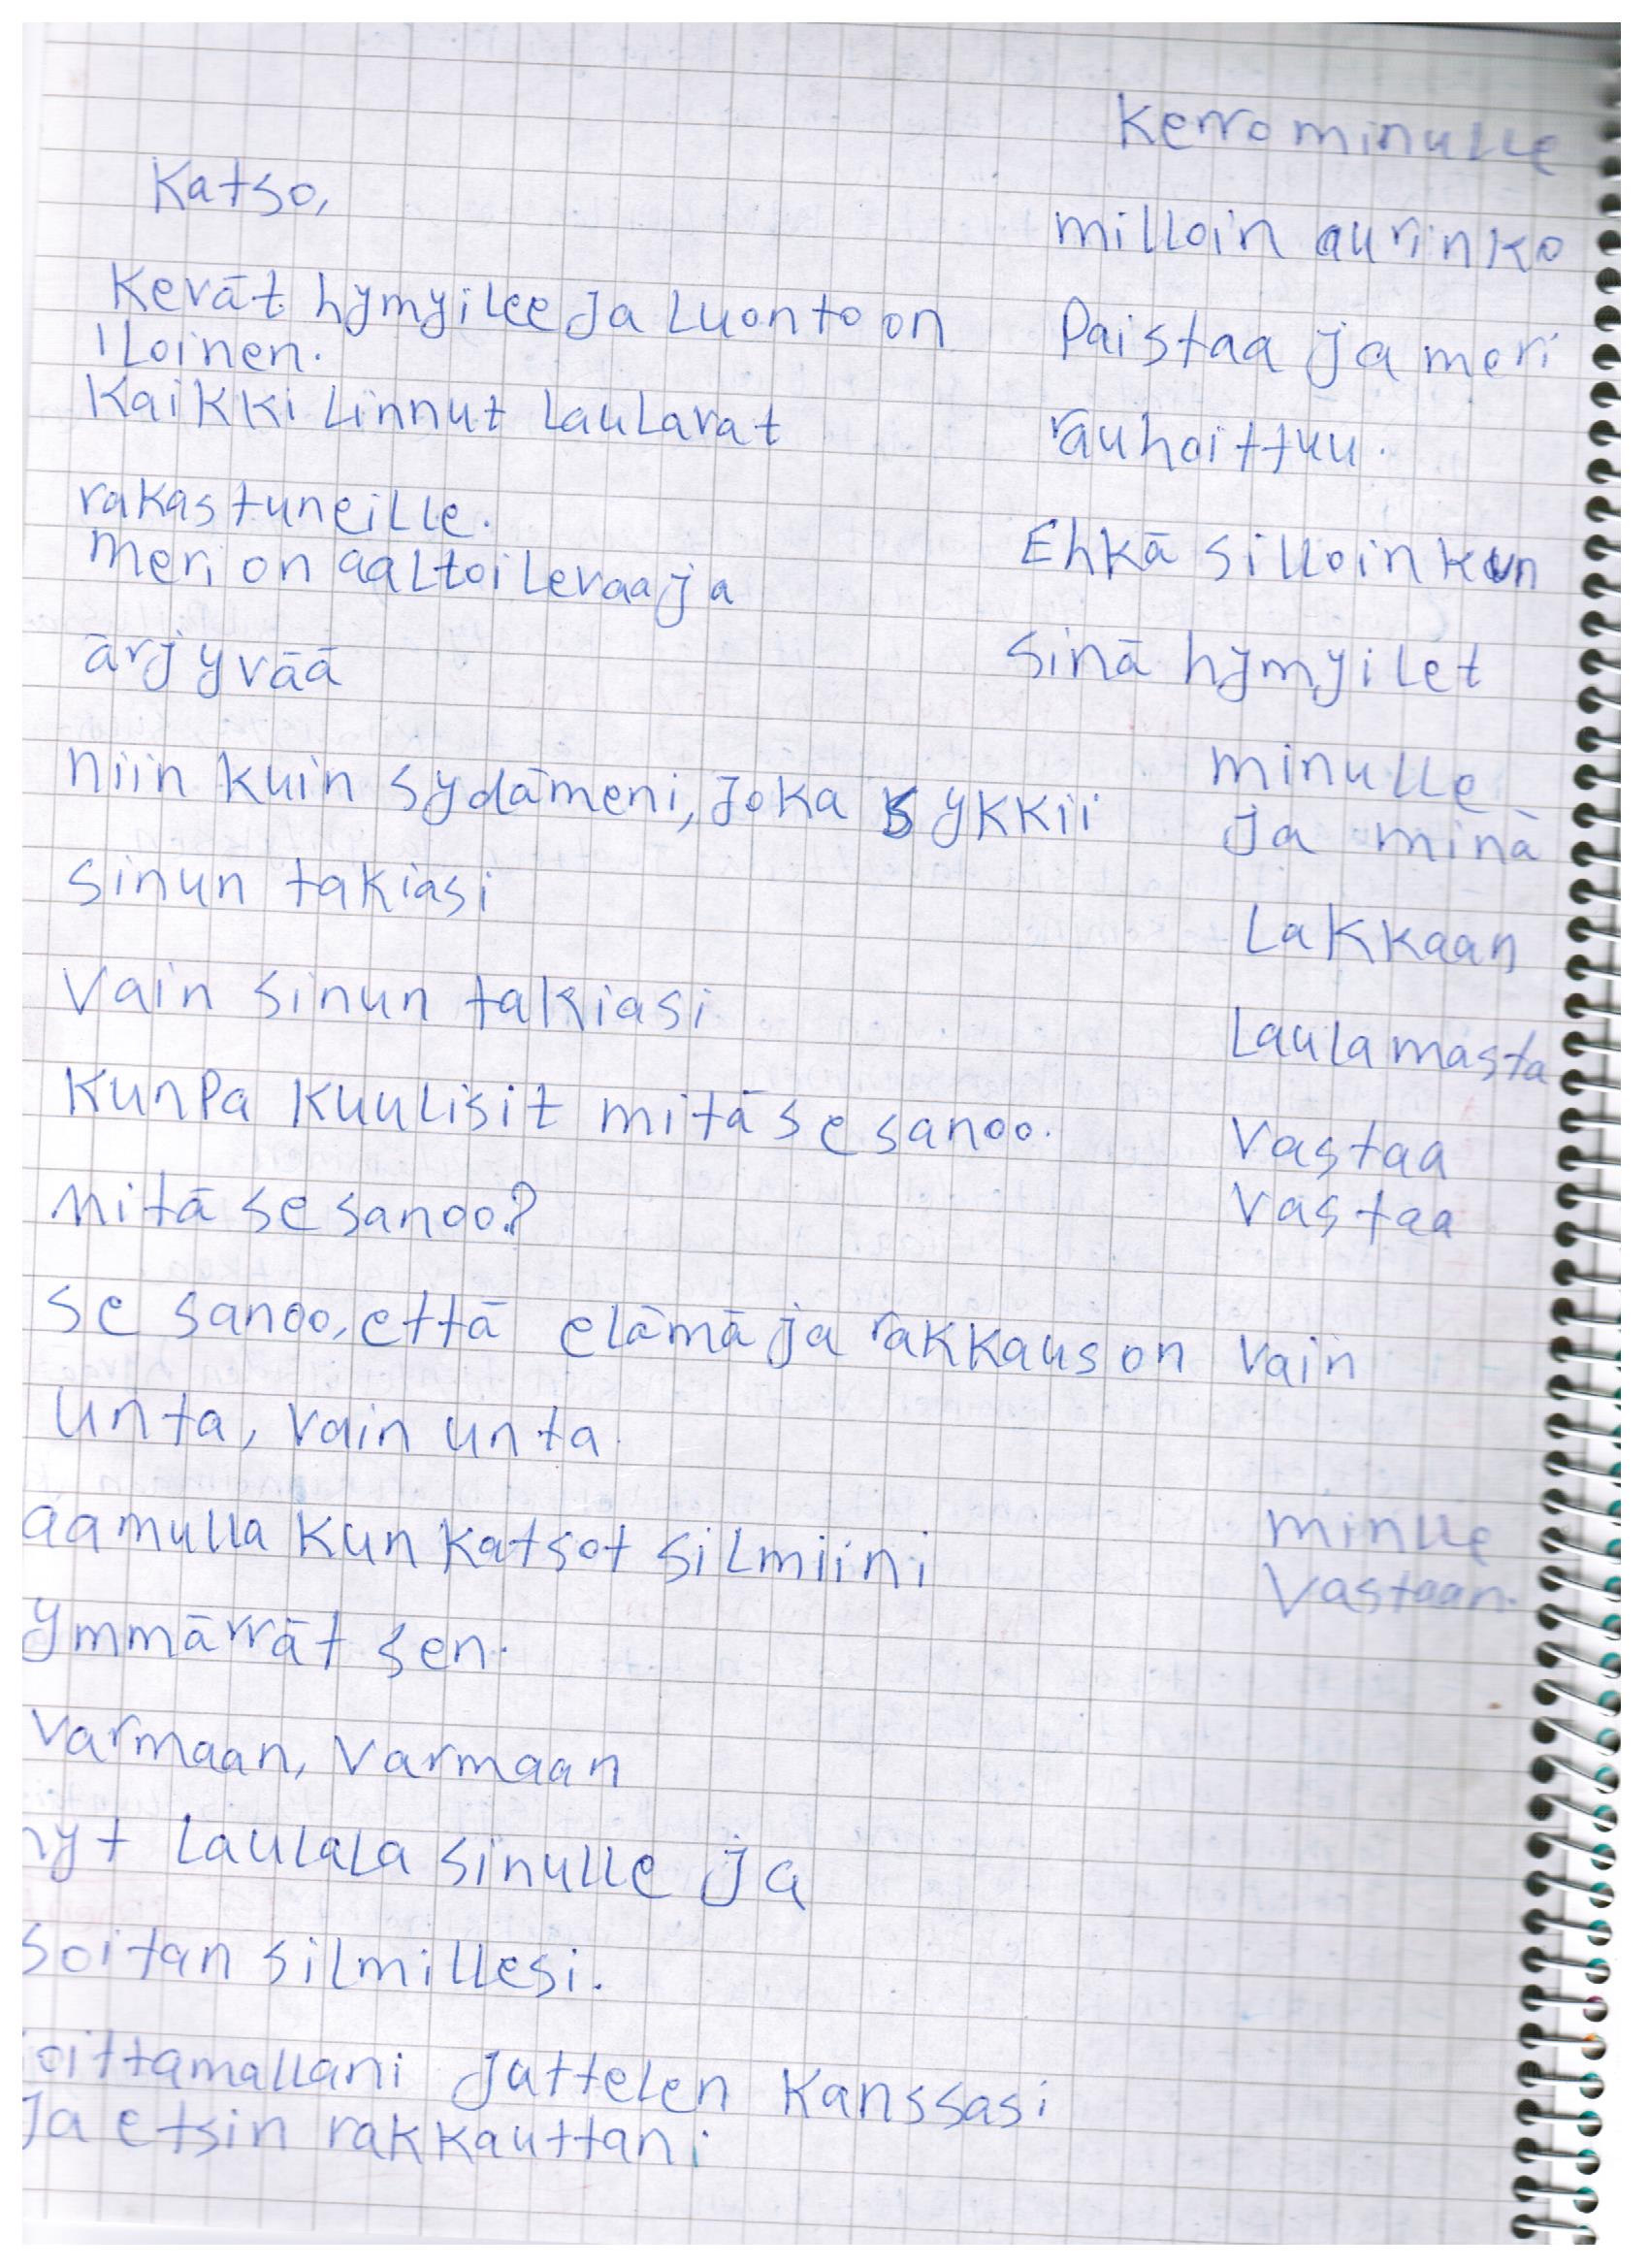 Katso,
Kevät hymyilee ja Luonto on
iLoinen.
Kaikki Linnut LauLavat
rakastuneille.
meri on aaltoilevaa ja
ärjyvää
niin kuin sydämeni, joka sykkii
sinun takiasi
Vain sinun takiasi
KunPa kuulisit mitä se sanoo.
mitä se sanoo?
se sanoo, että elämä ja rakkaus on vain
unta, vain unta.
aamulla kun katsot silmiini
ymmärrät sen.
varmaan, varmaan
nyt LauLaLa sinulle ja
soitan silmillesi.
soittamallani juttelen kanssasi
Ja etsin rakkauttani
Kerro minulle
milloin aurinko
Paistaa ja meri
rauhoittuu.
Ehkä silloin kun
sinä hymyilet
minulle
ja minä
Lakkaan
Laulamasta
Vastaa
Vastaa
minlle
Vastaan.